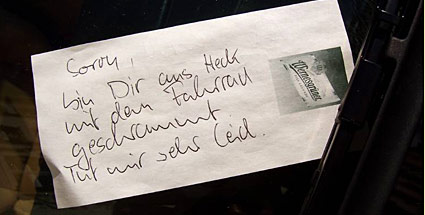 Sorry!
bin Dir ans Heck
mit dem Fahrrad
geschrammt
Tut mir sehr Leid.